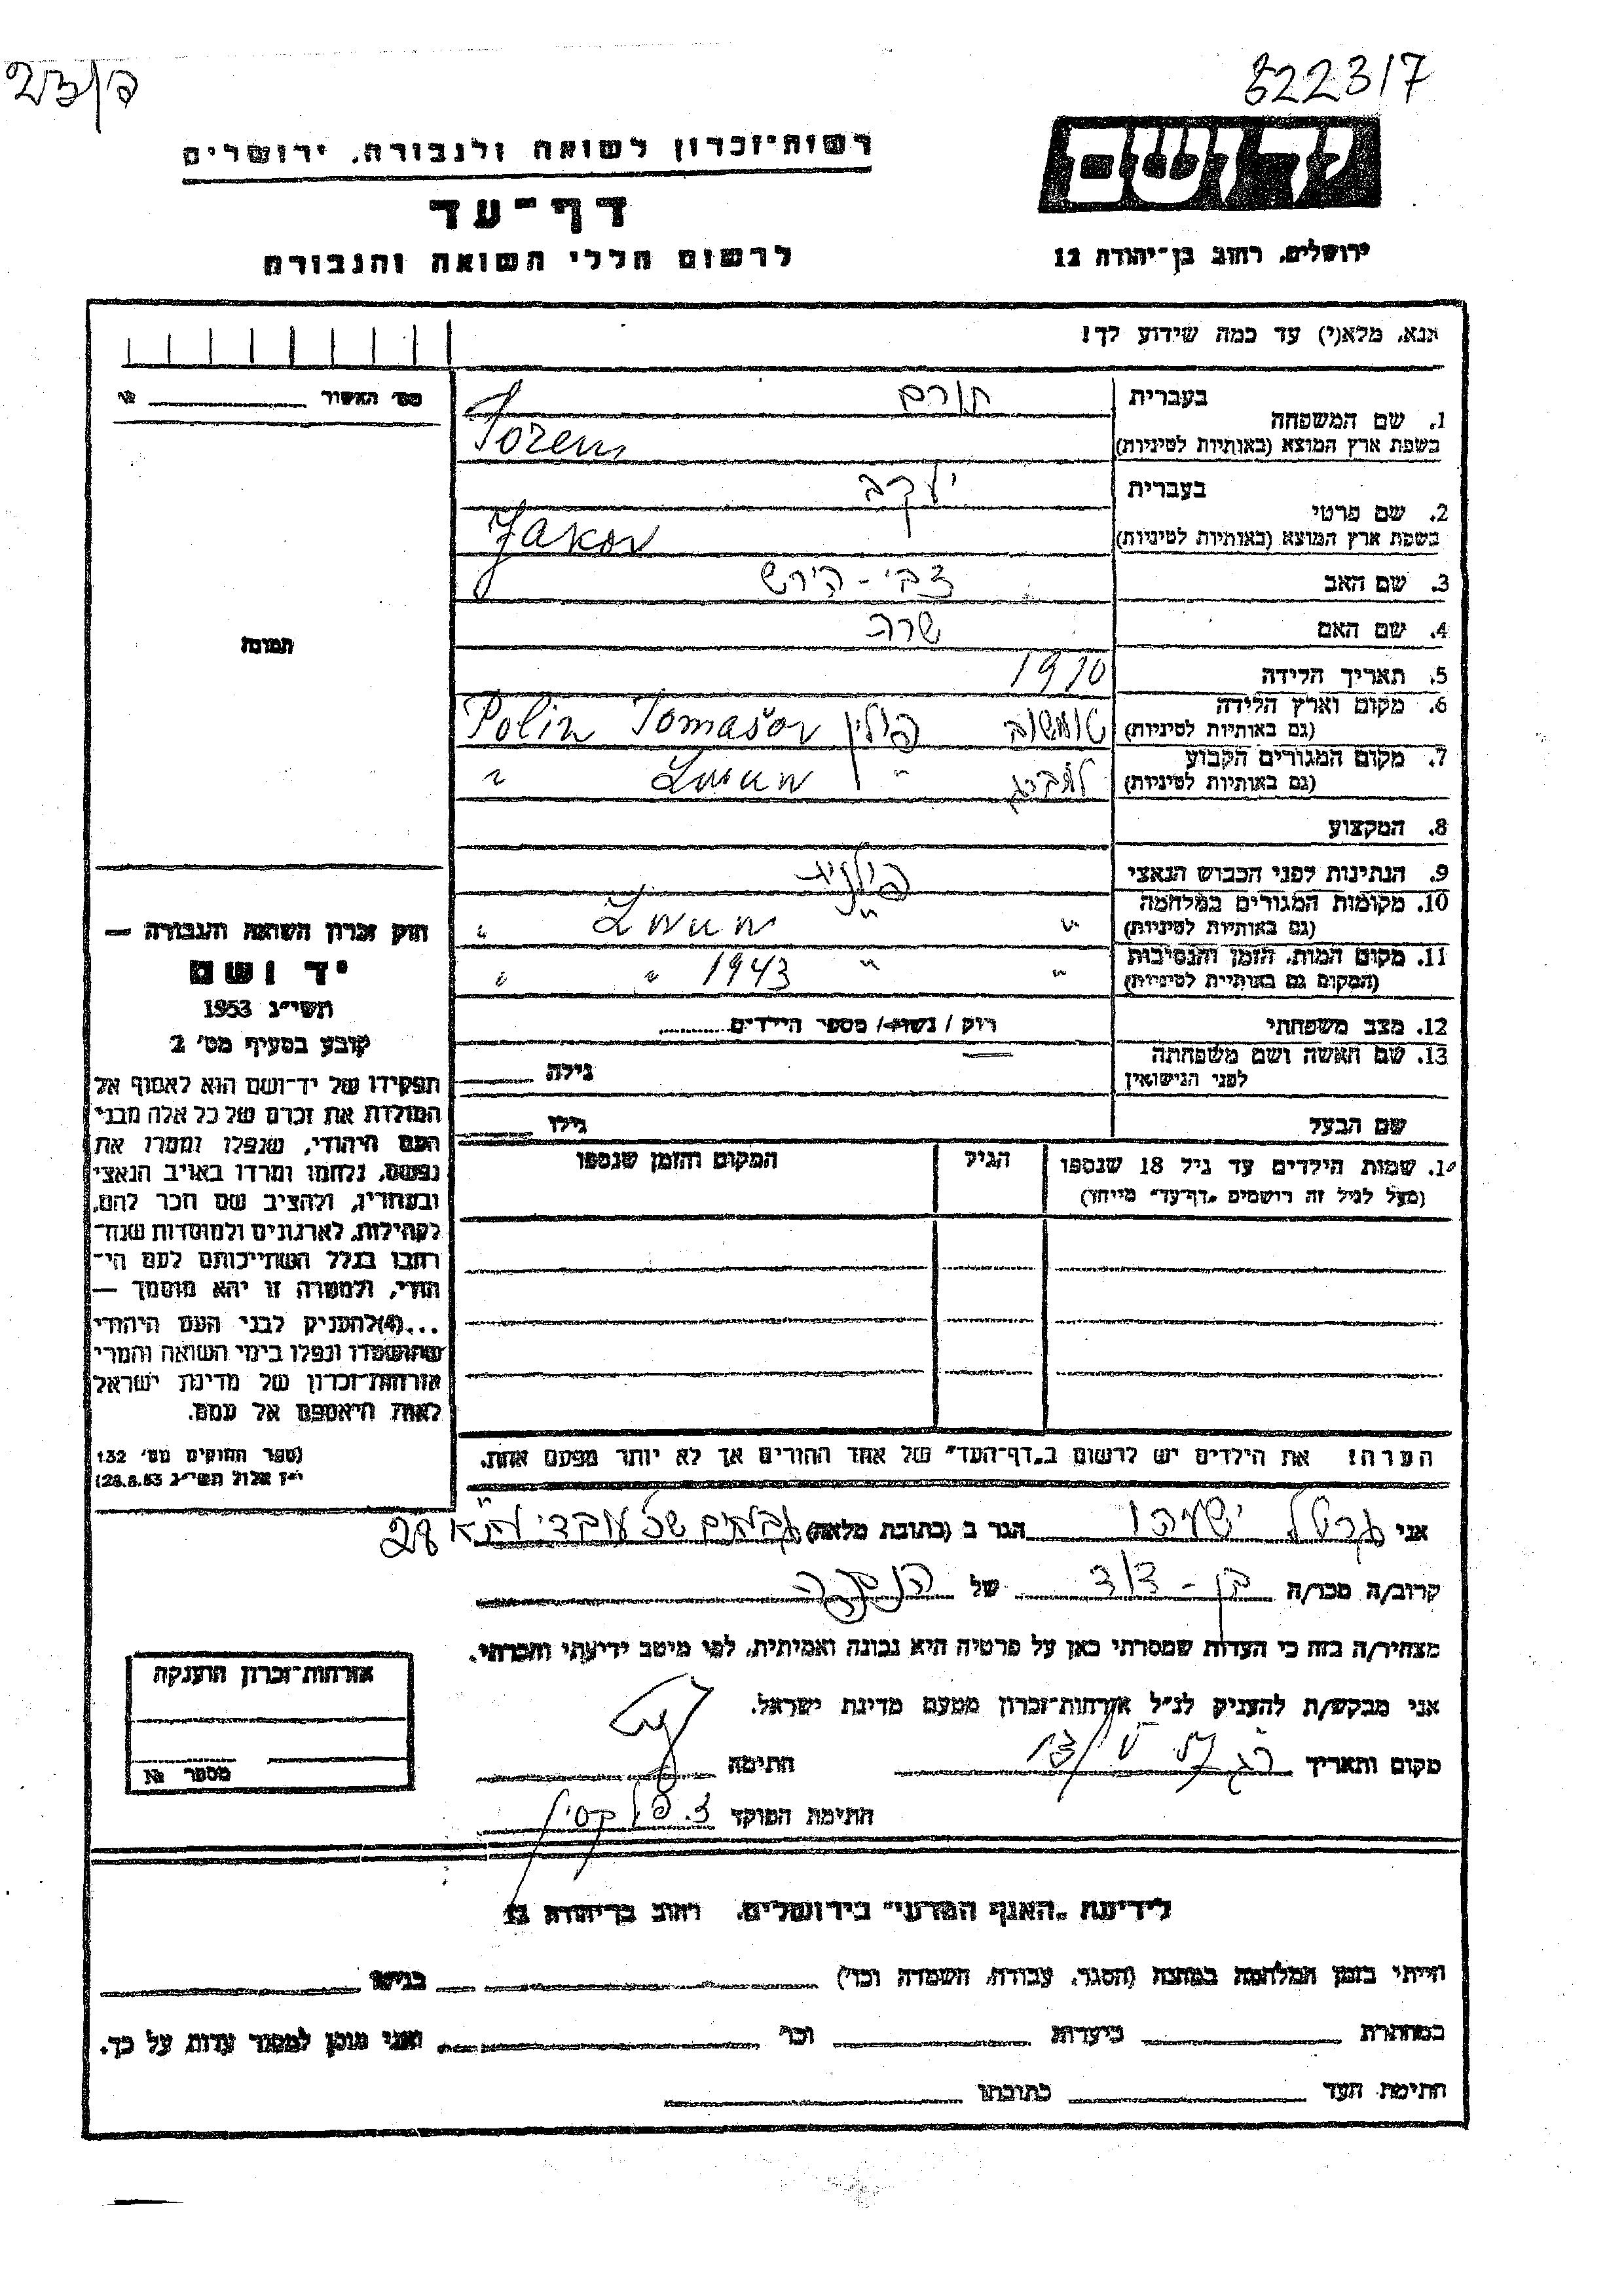 822317
רשות־זכרון לשואה ולגבורה, ירושלים
דף־עד
לרשום חללי השואה והגבורה
יד ושם
ירושלים, רחוב בן־יהודה 12
אנא, מלא(י) עד כמה שידוע לך!
מס' האשור №
1. שם המשפחה
בעברית תורם
בשפת ארץ המוצא (באותיות לטיניות) Torem
2. שם פרטי
בעברית יעקב
בשפת ארץ המוצא (באותיות לטיניות) Jakov
3. שם האב צבי - הירש
4. שם האם שרה
5. תאריך הלידה 1910
6. מקום וארץ הלידה
(גם באותיות לטיניות) טומשוב פולין Tomašov Polin
7. מקום המגורים הקבוע
(גם באותיות לטיניות) " "
8. המקצוע
9. הנתינות לפני הכבוש הנאצי פולנית
10. מקומות המגורים במלחמה
(גם באותיות לטיניות) " " "
11. מקום המות, הזמן והנסיבות
(המקום גם באותיות לטיניות) " " 1943 " "
12. מצב משפחתי רוק / נשוי / מספר הילדים
13. שם האשה ושם משפחתה
לפני הנישואין גילה
שם הבעל גילו
שמות הילדים עד גיל 18 שנספו
(מעל לגיל זה רושמים "דף־עד" מיוחד)
הגיל
המקום והזמן שנספו
הערה! את הילדים יש לרשום ב"דף־העד" של אחד ההורים אך לא יותר מפעם אחת.
תמונה
חוק זכרון השואה והגבורה —
יד ושם
תשי"ג 1953
קובע בסעיף מס' 2
תפקידו של יד־ושם הוא לאסוף אל
המולדת את זכרם של כל אלה מבני
העם היהודי, שנפלו ומסרו את
נפשם, נלחמו ומרדו באויב הנאצי
ובעוזריו, ולהציב שם וזכר להם,
לקהילות, לארגונים ולמוסדות שנח־
רבו בגלל השתייכותם לעם הי־
הודי, ולמטרה זו יהא מוסמך —
...(4) להעניק לבני העם היהודי
שהושמדו ונפלו בימי השואה והמרי
אזרחות־זכרון של מדינת ישראל
לאות היאספם אל עמם.
(ספר החוקים מס' 132
י"ז אלול תשי"ג 28.8.53)
אני ישעיהו הגר ב (כתובת מלאה) 28
קרוב/ה מכר/ה בן - דוד של
מצהיר/ה בזה כי העדות שמסרתי כאן על פרטיה היא נכונה ואמיתית, לפי מיטב ידיעתי והכרתי.
אני מבקש/ת להעניק לנ"ל אזרחות־זכרון מטעם מדינת ישראל.
מקום ותאריך 13/V 57 חתימה
חתימת הפוקד
אזרחות־זכרון הוענקה
מספר №
לידיעת "האגף המדעי" בירושלים, רחוב בן־יהודה 12
הייתי בזמן המלחמה במחנה (הסגר, עבודה, השמדה וכו') בגיטו
במחתרת ביערות וכו' ואני מוכן למסור עדות על כך.
חתימת העד כתובתו